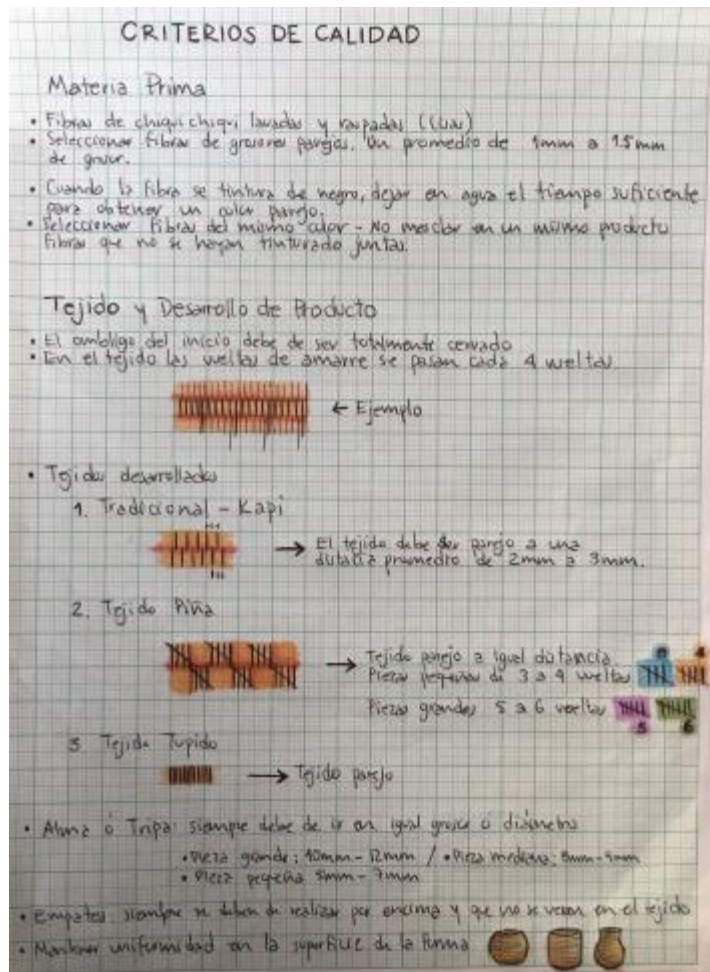 CRITERIOS DE CALIDAD
Materia Prima
• Fibras de chiquichiqui lavadas y raspadas
• Seleccionar fibras de grosores parejos. Un promedio de 1mm a 1.5mm
de grosor.
• Cuando la fibra se tintura de negro, dejar en agua el tiempo suficiente
para obtener un color parejo.
• Seleccionar fibras del mismo color - No mesclar en un mismo producto
Fibras que no se hayan tinturado juntas.
Tejido y Desarrollo de Producto
• El ombligo del inicio debe de ser totalmente cerrado
• En el tejido las vueltas de amarre se pasan cada 4 vueltas
← Ejemplo
• Tejidos desarrollados
1. Tradicional - Kapi
→ El tejido debe ser parejo a una
distancia promedio de 2mm a 3mm.
2. Tejido Piña
→ Tejido parejo a igual distancia
Piezas pequeñas de 3 a 4 vueltas
4
Piezas grandes 5 a 6 vueltas
5 6
3 Tejido Tupido
→ Tejido parejo
• Alma ó Tripa: siempre debe de ir en igual grosor o diámetro
• Pieza grande: 10mm - 12mm / • Pieza mediana: 8mm - 9mm
• Pieza pequeña 5mm - 7mm
• Empates: siempre se deben de realizar por encima y que no se vean en el tejido
• Mantener uniformidad en la superficie de la forma